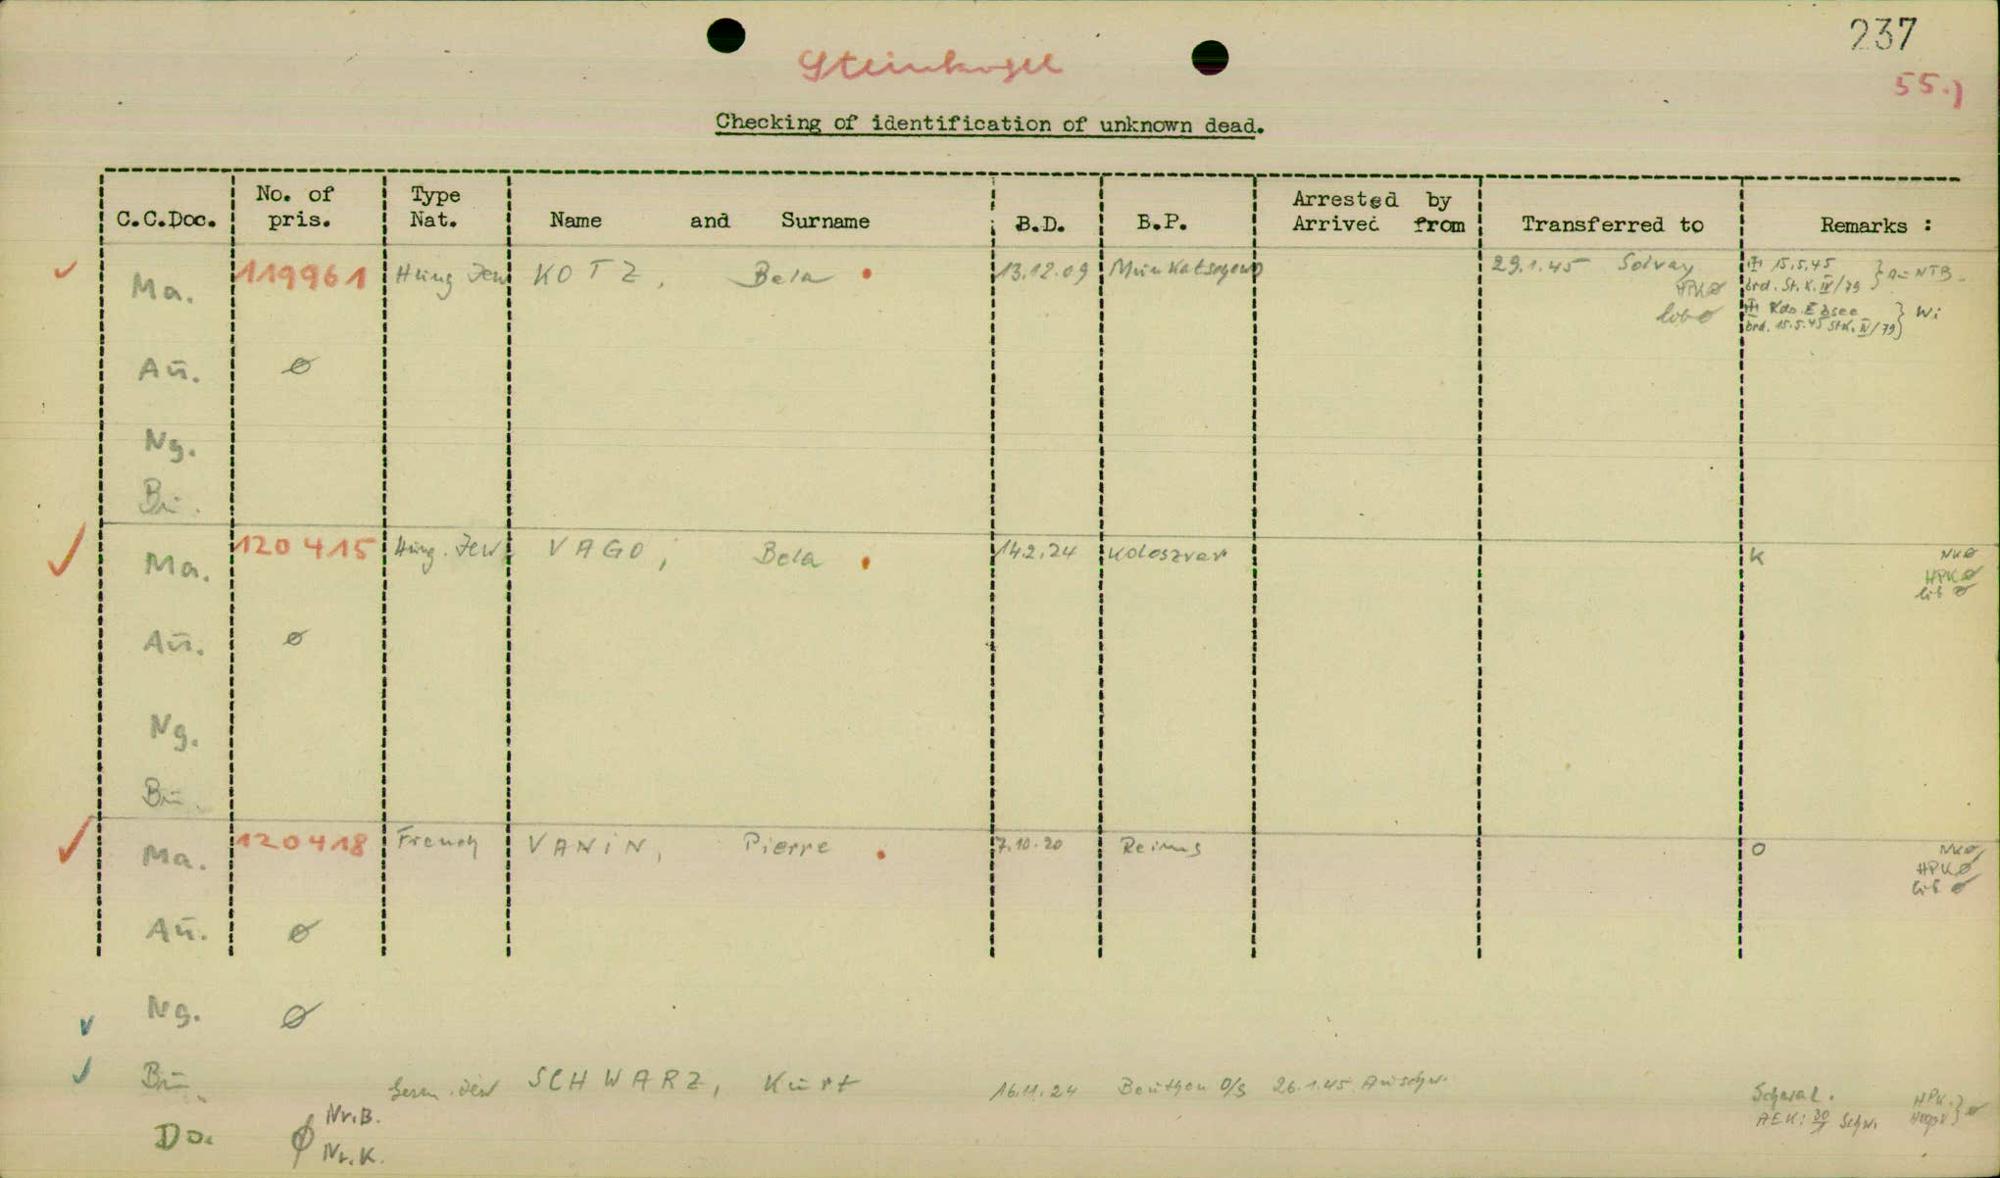 237
Steinkogel
55.)
Checking of identification of unknown dead.
C.C.Doc. No. of pris. Type Nat. Name and Surname B.D. B.P. Arrested by Arrived from Transferred to Remarks :
Ma. 119961 Hung Jew KOTZ, Bela 13.12.09 29.1.45 Solvay 15.5.45
HPK ø brd. St. K. IV/79 } a = NTB
lib ø Kdo. Ebsee
brd. 15.5.45 St.K. IV/79 } Wi
Aū. ø
Ng.
Bū.
Ma. 120415 Hung. Jew VAGO, Bela 14.2.24 Koloszvar K NK ø
HPK ø
lib ø
Aū. ø
Ng.
Bū.
Ma. 120418 French VANIN, Pierre 7.10.20 Reims O NK ø
HPK ø
lib ø
Aū. ø
Ng. ø
Bū. Germ. Jew SCHWARZ, Kurt 16.11.24 Beuthen O/S 26.1.45 Auschw.
AEK: Schw.
Do. ø Nr.B.
Nr.K.